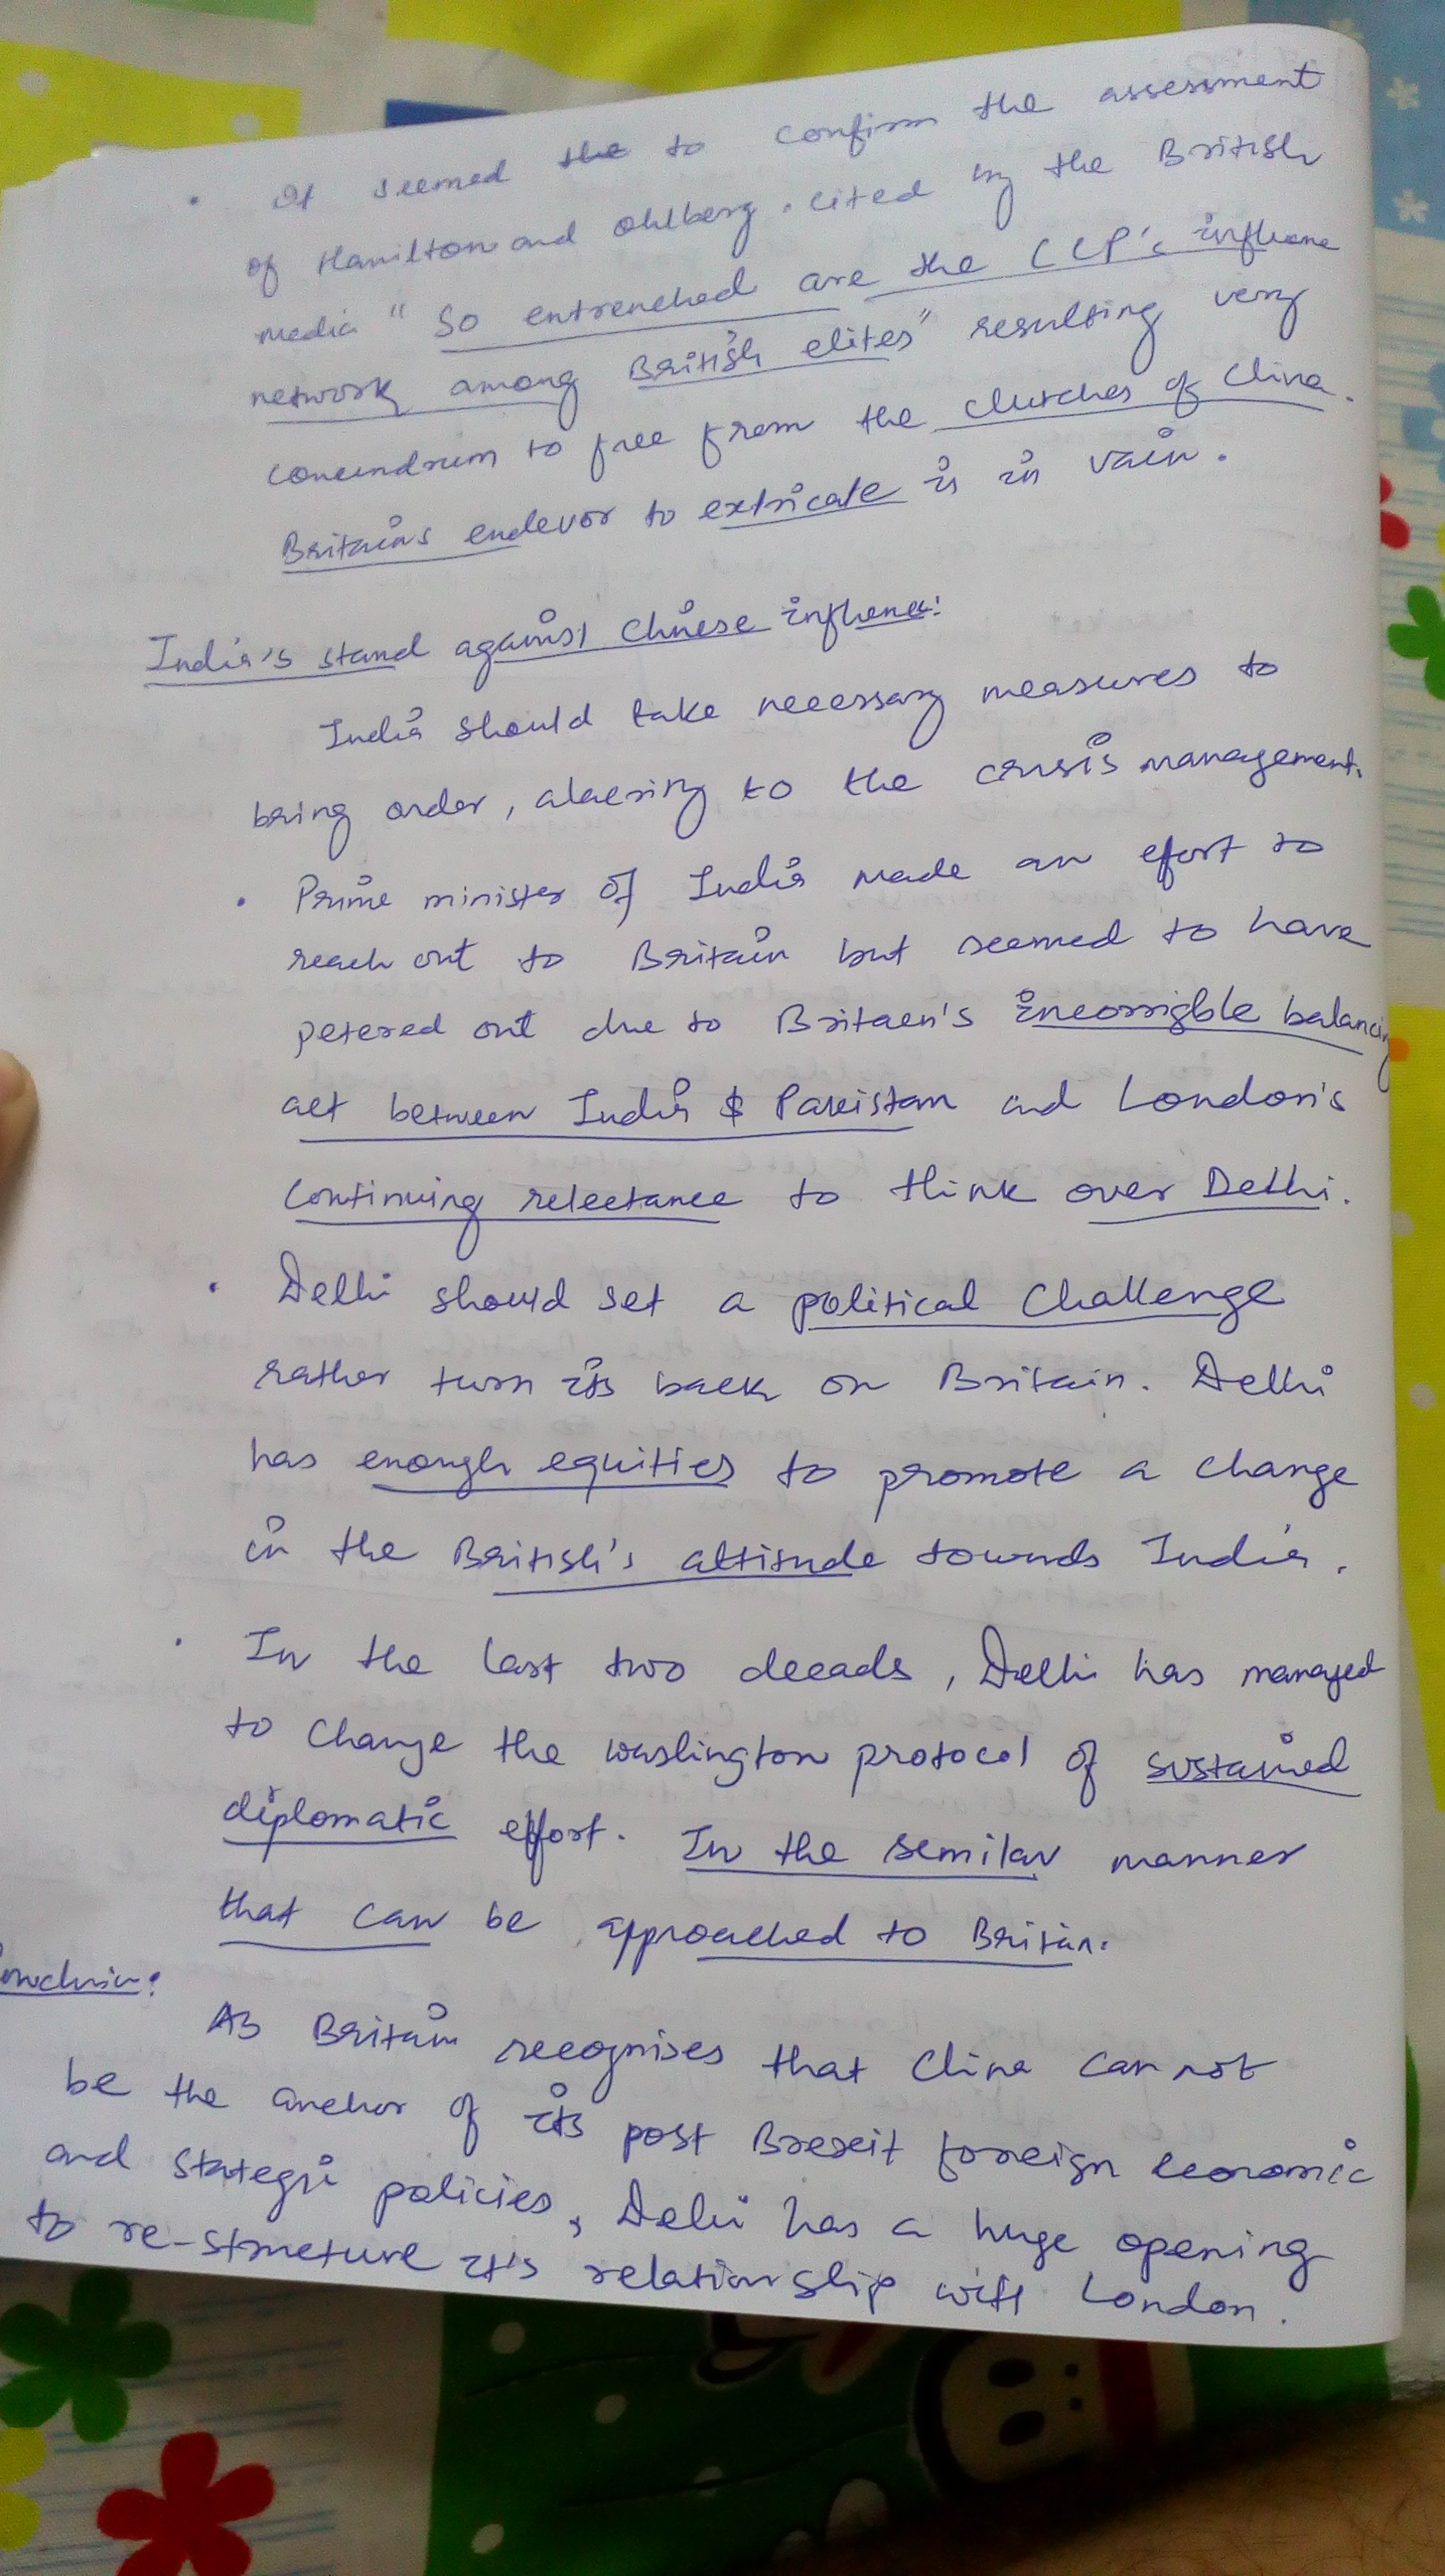 • It seemed the to confirm the assessment
of Hamilton and Ohlberg. cited by the British
media "So entrenched are the CCP's influence
network among British elites" resulting very
conundrum to free from the clutches of China.
Britains endevor to extricate is in vain.
India's stand against Chinese influence:
India should take necessary measures to
bring order, to the crisis management.
• Prime minister of India made an effort to
reach out to Britain but seemed to have
petered out due to Britaen's incorrigble balancing
act between India & Pakistan and London's
continuing relectance to think over Delhi.
• Delhi should set a political challenge
rather turn its back on Britain. Delhi
has enough equities to promote a change
in the British's attitude towards India.
• In the last two decads, Delhi has managed
to change the washington protocol of sustained
diplomatic effort. In the semilar manner
that can be approached to Britain.
As Britain recognises that China can not
be the anchor of its post Brexit foreign economic
and stategic policies, Delhi has a huge opening
to re-structure it's relationship with London.